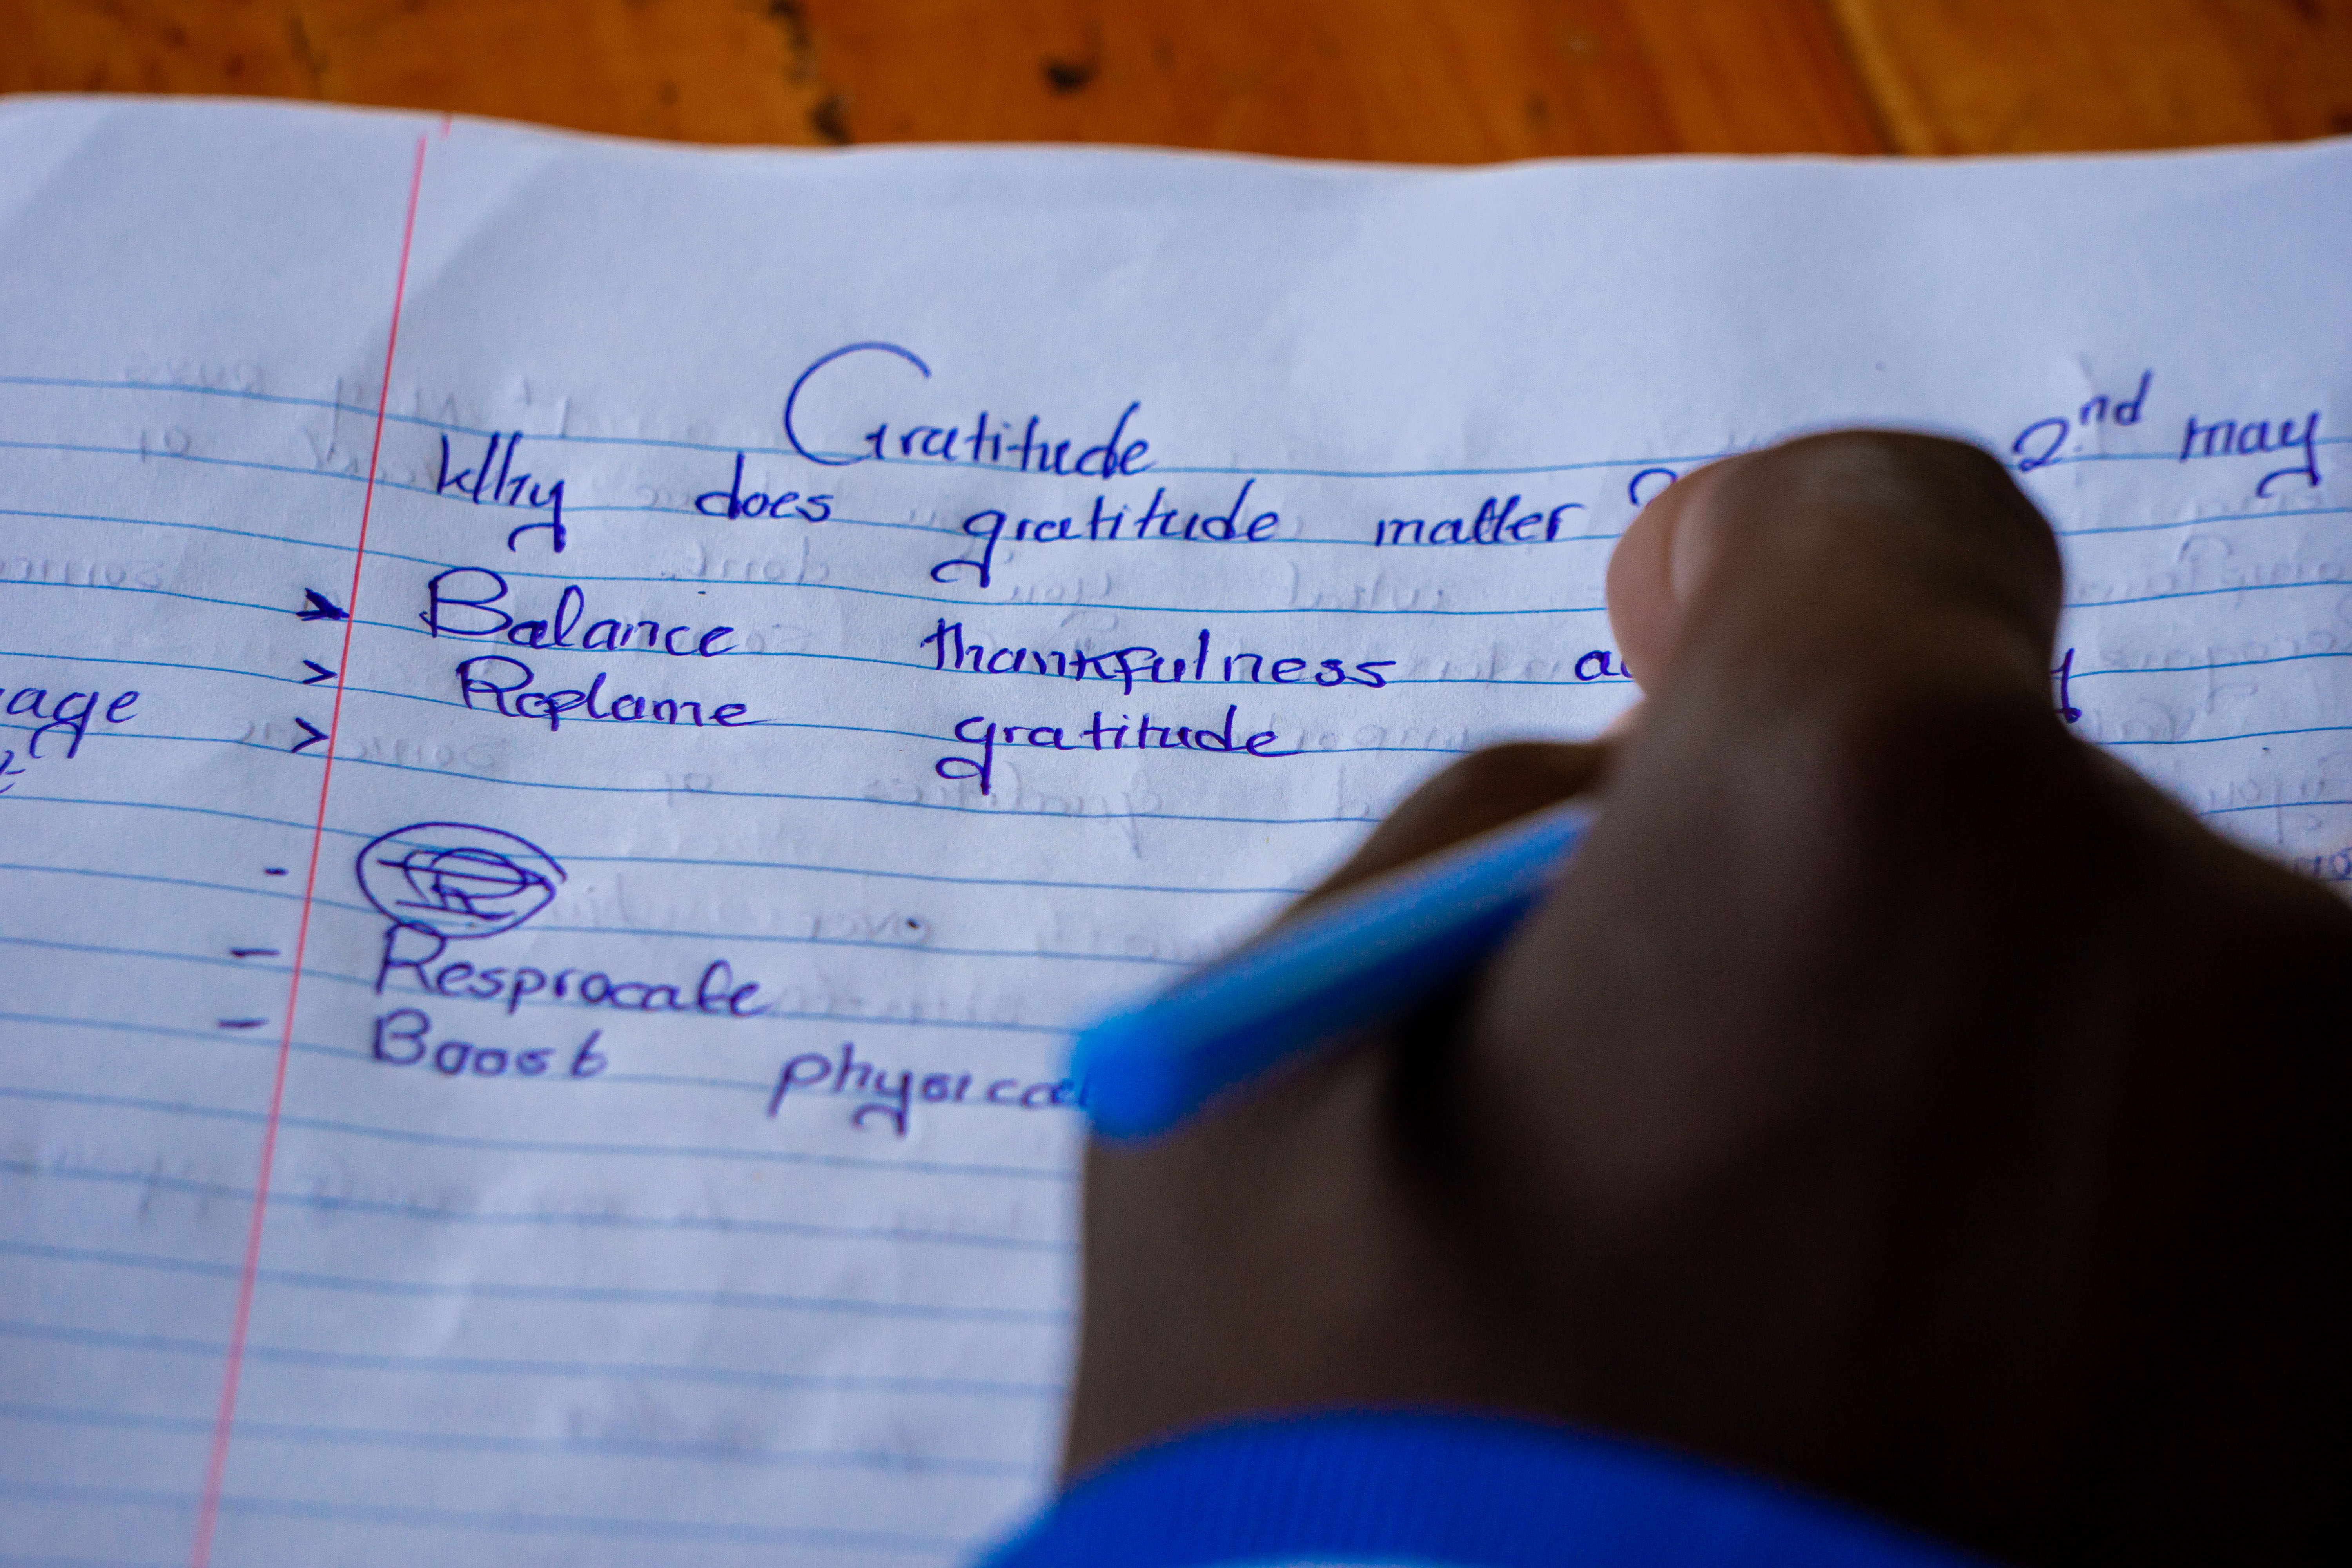 Gratitude
2nd may
Why does gratitude matter ?
> Balance thankfulness
> Replame gratitude
>
age
-
- Resprocate
- Boost physical